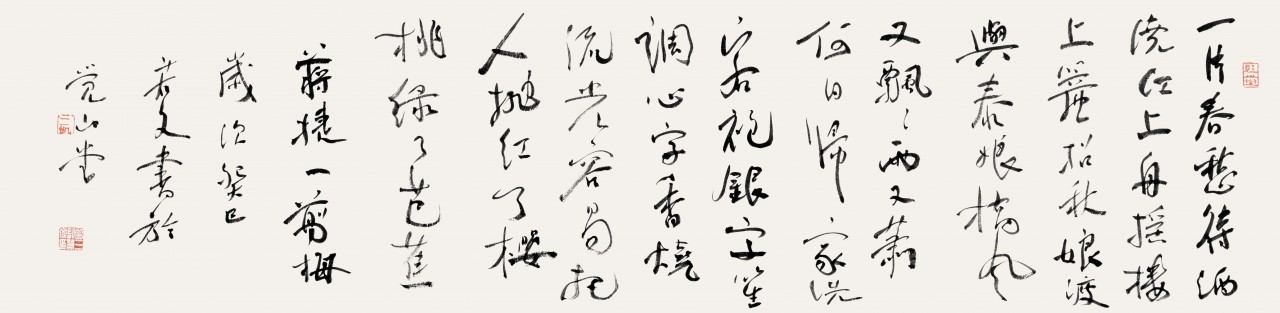 一片春愁待酒
澆江上舟摇樓
上簾招秋娘渡
與泰娘橋風
又飄々雨又蕭
何日歸家洗
客袍銀字笙
調心字香燒
流光容易把
人抛紅了櫻
桃綠了芭蕉
蔣捷一剪梅
歲次癸巳
若文書於
覺山堂